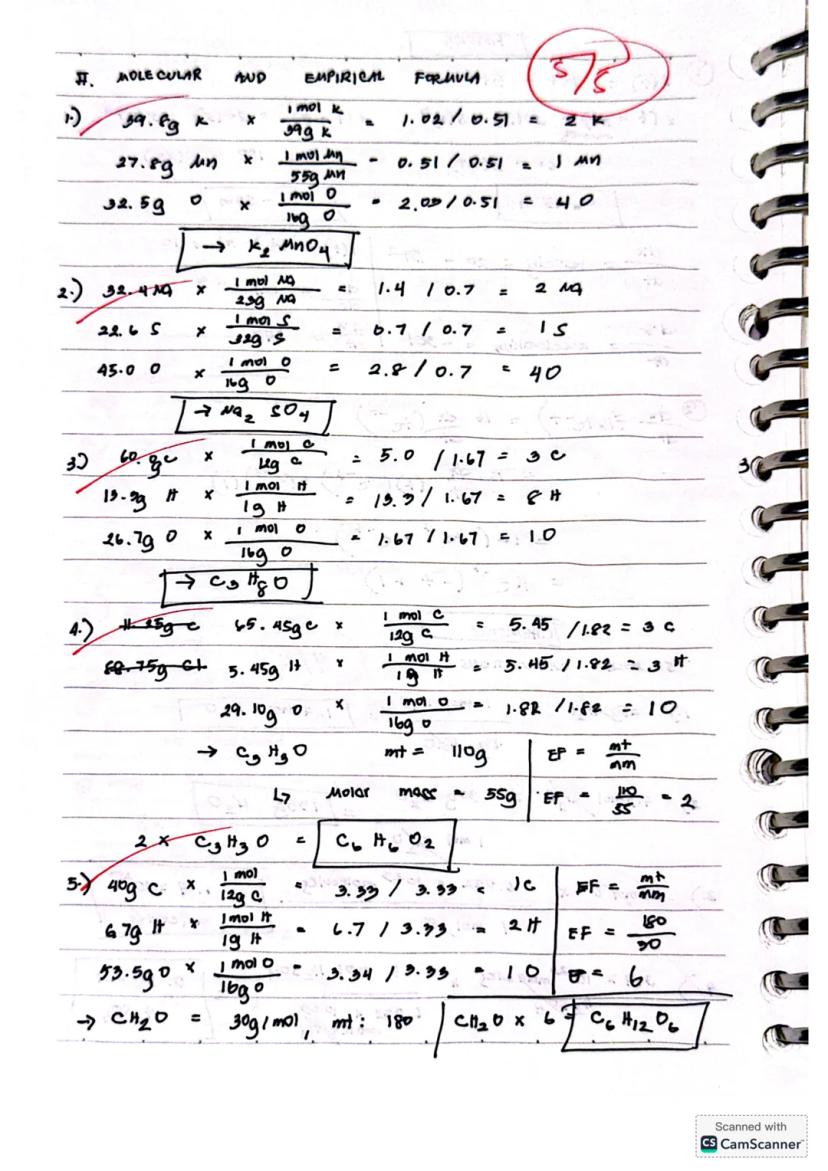 5/5
II. MOLECULAR AND EMPIRICAL FORMULA
1.) 39.8g K × 1 mol K / 39g K = 1.02 / 0.51 = 2 K
27.8g Mn × 1 mol Mn / 55g Mn = 0.51 / 0.51 = 1 Mn
32.5g O × 1 mol O / 16g O = 2.03 / 0.51 = 4 O
→ K₂ MnO₄
2.) 32.4 Na × 1 mol Na / 23g Na = 1.4 / 0.7 = 2 Na
22.6 S × 1 mol S / 32g S = 0.7 / 0.7 = 1 S
45.0 O × 1 mol O / 16g O = 2.8 / 0.7 = 4O
→ Na₂ SO₄
3.) 60.gC × 1 mol C / 12g C = 5.0 / 1.67 = 3 C
13.3g H × 1 mol H / 1g H = 13.3 / 1.67 = 8 H
26.7g O × 1 mol O / 16g O = 1.67 / 1.67 = 1O
→ C₃ H₈ O
3
4.) 11.25g C 65.45g C × 1 mol C / 12g C = 5.45 / 1.82 = 3 C
88.75g Cl 5.45g H × 1 mol H / 1g H = 5.45 / 1.82 = 3 H
29.10g O × 1 mol O / 16g O = 1.82 / 1.82 = 1O
→ C₃ H₃ O mt = 110g EF = mt / mm
↳ Molar mass = 55g EF = 110 / 55 = 2
2 × C₃ H₃ O = C₆ H₆ O₂
5.) 40g C × 1 mol / 12g C = 3.33 / 3.33 = 1C EF = mt / mm
6.7g H × 1 mol H / 1g H = 6.7 / 3.33 = 2H EF = 180 / 30
53.5g O × 1 mol O / 16g O = 3.34 / 3.33 = 1 O = 6
→ CH₂O = 30g/mol, mt: 180 CH₂O × 6 = C₆ H₁₂ O₆
Scanned with
CS CamScanner